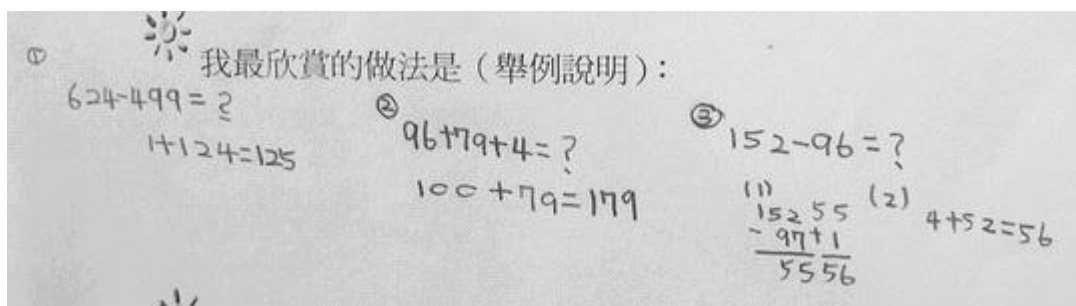 ① 我最欣賞的做法是（舉例說明）：
624-499=?
1+124=125
② 96+79+4=?
100+79=179
③ 152-96=?
(1)
152 55
- 97 + 1
55 56
(2) 4+52=56